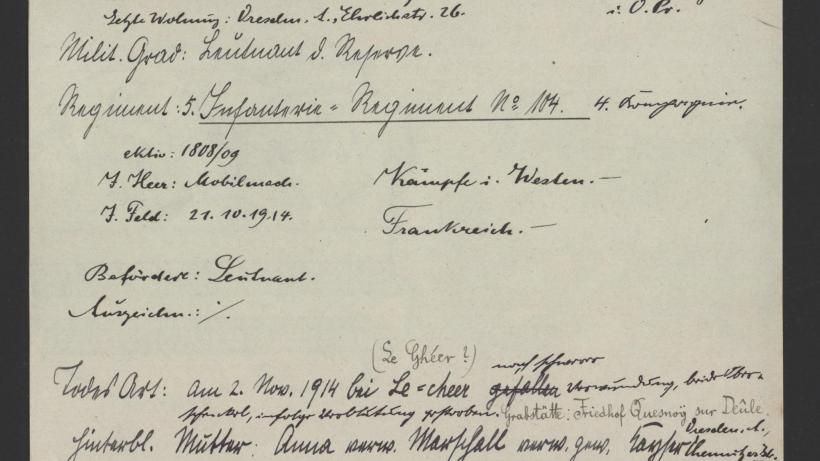 Letzte Wohnung: Dresden. A., Ehrlichstr. 26.
i. O. Pr.
Milit. Grad: Leutnant d. Reserve.
Regiment: 5. Infanterie-Regiment No 104. 4. Kompagnie.
aktiv: 1908/09
I. Heer: Mobilmach. Kämpfe i. Westen.-
I. Feld: 21.10.1914. Frankreich.-
Befördert: Leutnant.
Auszeichn.: /.
(Le Ghéer?) nach schwerer
Todes Art: am 2. Nov. 1914 bei Le=cheer gefallen Verwundung, beide Ober-
schenkel, infolge Verblutung gestorben. Grabstätte: Friedhof Quesnoÿ sur Deûle.
Hinterbl. Mutter: Anna verw. Marschall verw. gew. Kayser Dresden. A.,